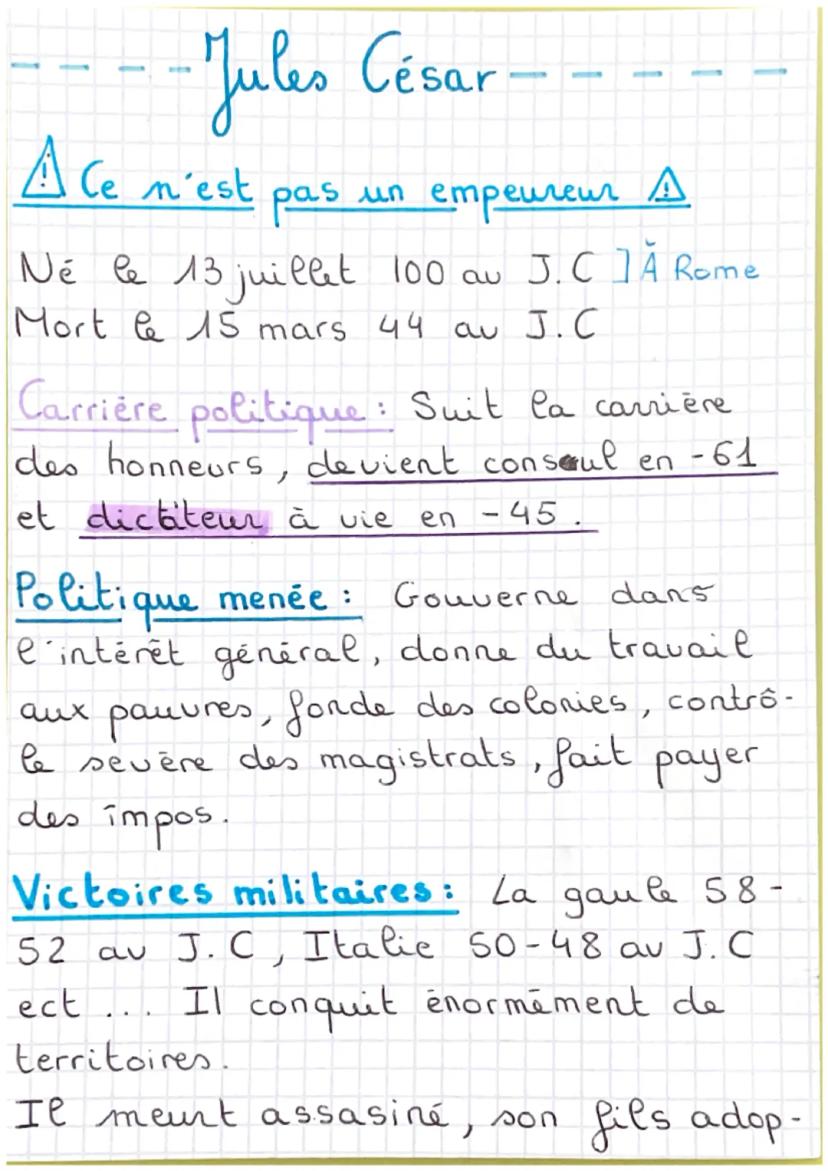 Jules César
⚠ Ce n'est pas un empeureur ⚠
Né le 13 juillet 100 av J.C ] À Rome
Mort le 15 mars 44 av J.C
Carrière politique : Suit la carrière
des honneurs, devient consul en -61
et dictateur à vie en -45.
Politique menée : Gouverne dans
l'intérêt général, donne du travail
aux pauvres, fonde des colonies, contrô-
le sevère des magistrats, fait payer
des impos.
Victoires militaires : La gaule 58-
52 av J.C, Italie 50-48 av J.C
ect ... Il conquit énormément de
territoires.
Il meurt assasiné, son fils adop-